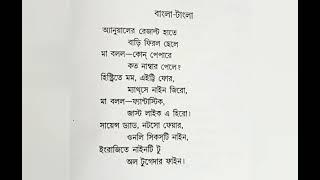 বাংলা-টাংলা
অ্যানুয়ালের রেজাল্ট হাতে
বাড়ি ফিরল ছেলে
মা বলল—কোন্ পেপারে
কত নাম্বার পেলে?
হিস্ট্রিতে মম, এইট্টি ফোর,
ম্যাথ্সে নাইন জিরো,
মা বলল—ফ্যান্টাস্টিক,
জাস্ট লাইক এ হিরো।
সায়েন্স ড্যাড, নটসো ফেয়ার,
ওনলি সিকস্টি নাইন,
ইংরাজিতে নাইনটি টু
অল টুগেদার ফাইন।